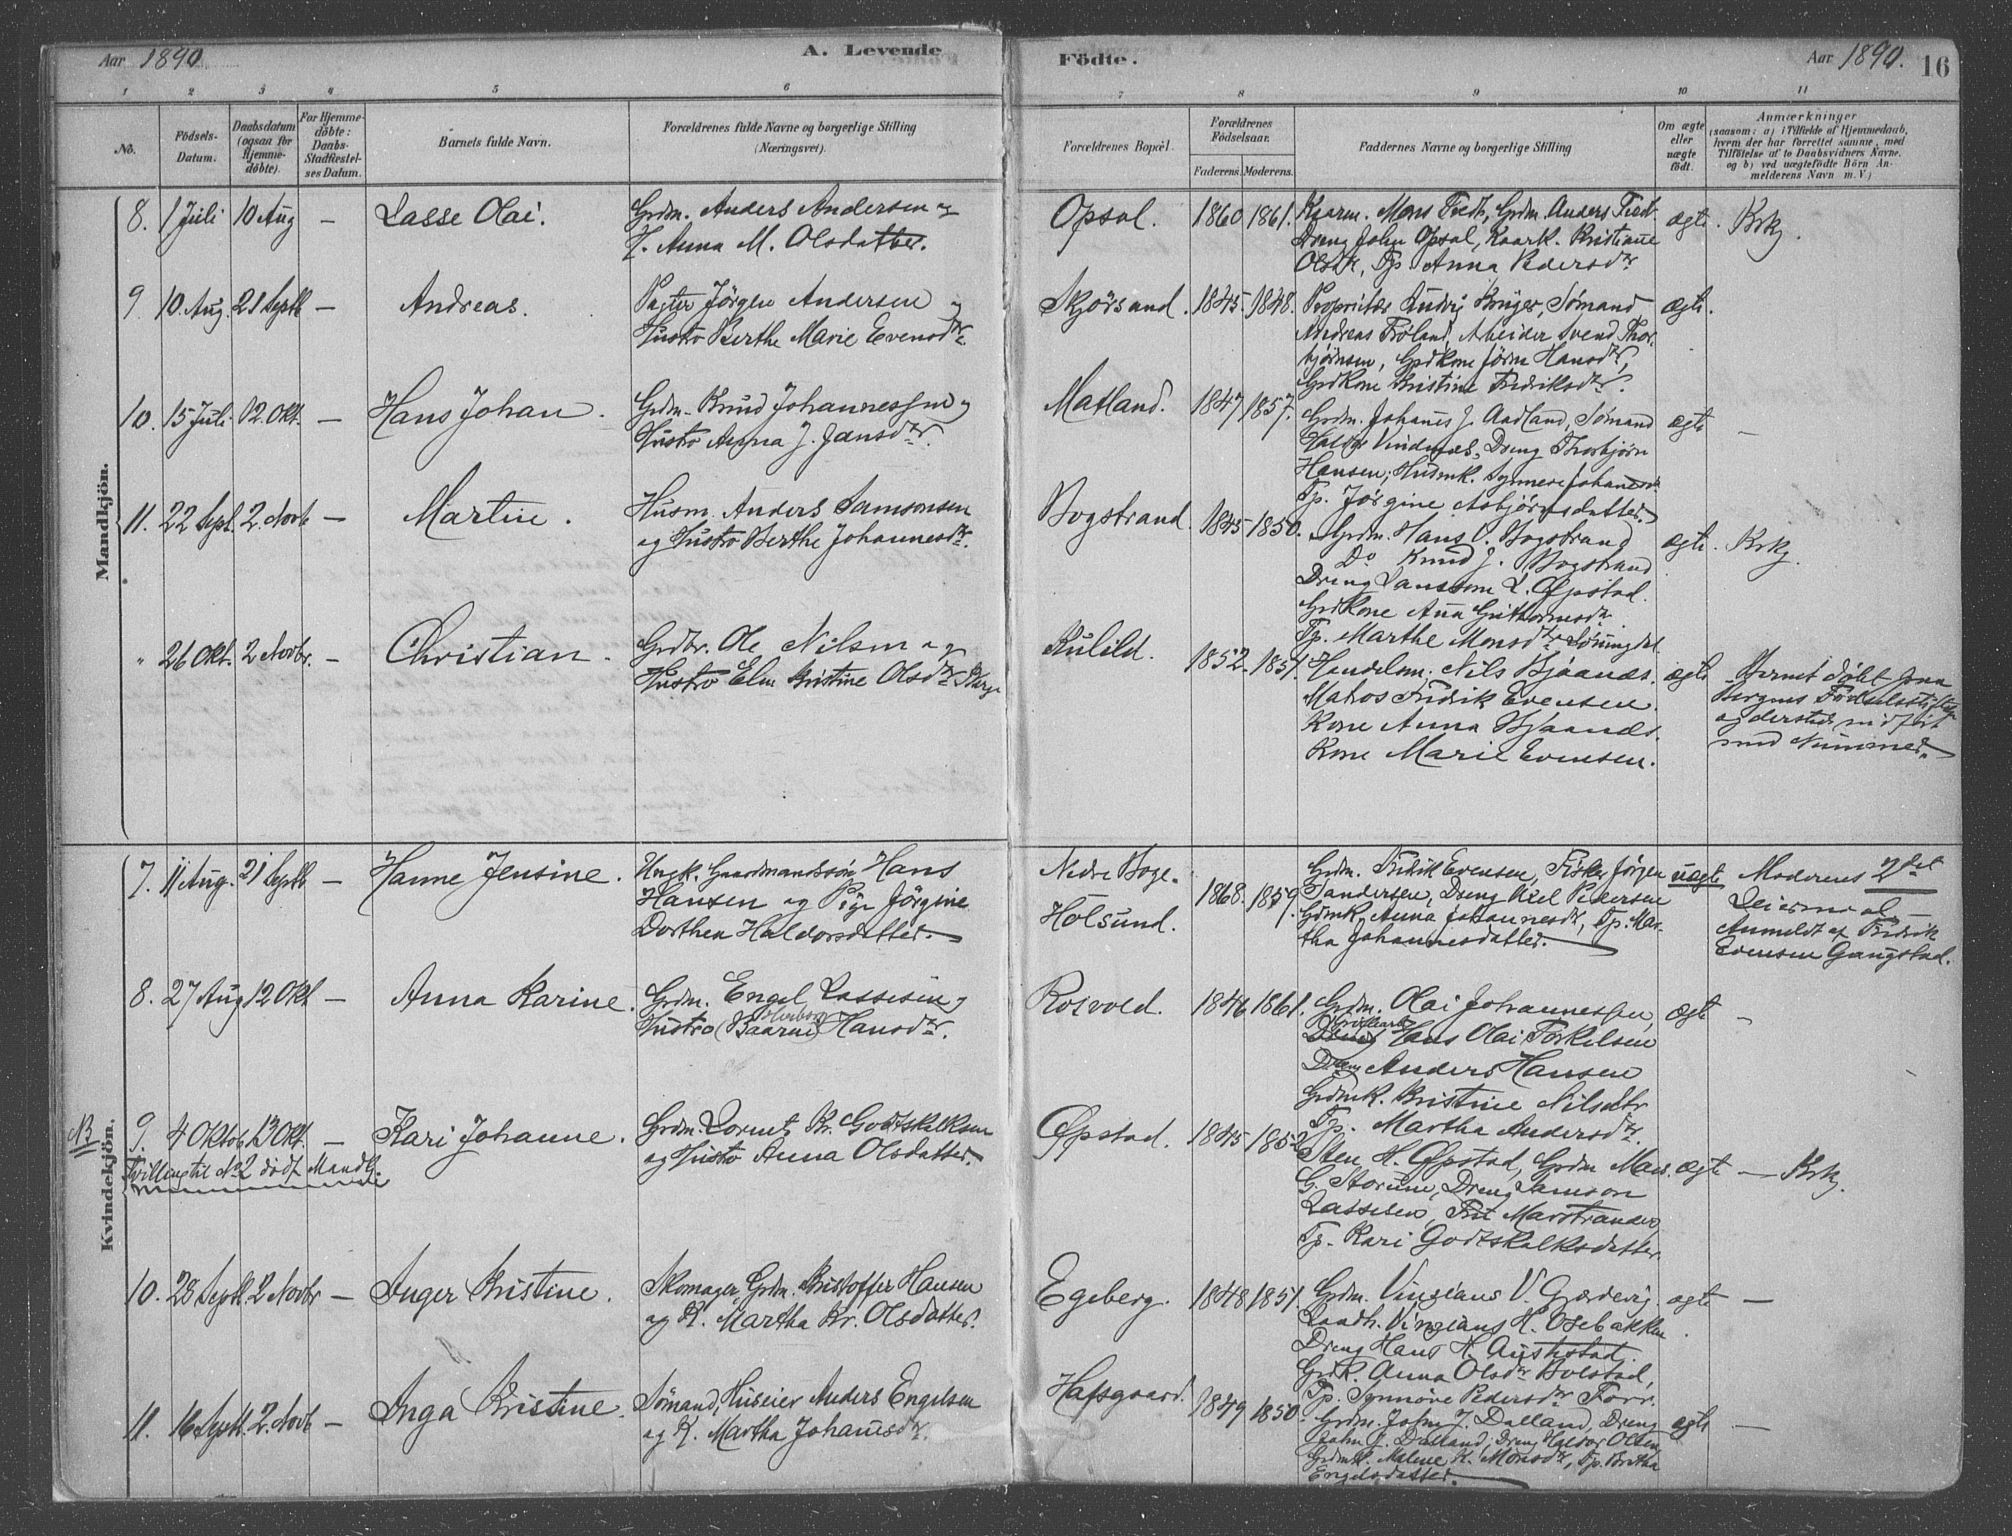 Aar 1890.
A. Levende
Födte.
Aar 1890.
16
1 2 3 4 5 6 7 8 9 10 11
No.
Födsels-
Datum.
Daabsdatum
(ogsaa for
Hjemme-
döbte).
For Hjemme-
döbte:
Daabs-
Stadfæstel-
ses Datum.
Barnets fulde Navn.
Forældrenes fulde Navne og borgerlige Stilling
(Næringsvei).
Forældrenes Bopæl.
Forældrenes
Födselsaar.
Faderens. Moderens.
Faddernes Navne og borgerlige Stilling
Om ægte
eller
uægte
födt.
Anmærkninger
(saasom: a) i Tilfælde af Hjemmedaab,
hvem der har forrettet samme, med
Tilföielse af to Daabsvidners Navne,
og b) ved uægtefödte Börn An-
melderens Navn m. V.)
Mandkjön.
8. 1 Juli 10 Aug — Lasse Olai.
Grdm. Anders Andersen og
H. Anna M. Olsdatter.
Opsal. 1860 1861.
Mons Tvedt, Grdm. Anders Tvedt.
Dreng John Opsal, Kaark. Kristiane
Olsdtr, Tp. Anna Pedersdtr
ægte. Krkj.
9 10 Aug. 21 Septb — Andreas.
Jörgen Andersen og
Hustro Berthe Marie Evensdtr.
Skjörsand. 1845. 1848.
Proprietær Ludvig Krüger, Sömand
Andreas Fröland, Arbeider Svend Thor-
björnsen, Grdkone Jörn Hansdtr,
Grdkone Kristine Fredriksdtr.
ægte.
10. 15 Juli 12 Okt. — Hans Johan.
Grdm. Knud Johannessen og
Hustro Anna J. Jansdtr.
Matland. 1847 1857.
Grdm. Johanes J. Aadland, Sömand
Haldor Vindenæs, Dreng Thorbjörn
Hansen, Husmk. Synneve Johannesdtr
Tp. Jörgine Asbjörnsdatter.
ægte —
11. 22 Sept. 2. Novb — Martin.
Husm. Anders Samsonsen
og Hustro Berthe Johannesdtr.
Bogstrand. 1845. 1850.
Grdm. Hans O. Bogstrand
Do Knud J. Bogstrand
Dreng L. Öpstad.
Grdkone Ana Guthormsdtr
Tp. Marthe Monsdtr
ægte. Krkj.
" 26 Okt. 2 Novbr. — Christian.
Grdbr. Ole Nilsen og
Hustro Elen Kristine Olsdtr
Kulild. 1852. 1851.
Handelsm. Nils Bjaanæs.
Matros Fredrik Evensen.
Kone Anna Bjaanæs.
Kone Marie Evensen.
ægte Barnet döbt paa
Bergens Födselsstiftelse
og dersteds indfört
med Nummer.
Kvindekjön.
7. 11 Aug. 21 Septb — Hanne Jensine.
Ungk. Gaardmandssön Hans
Hansen og Pige Jörgine
Dorthea Haldorsdatter.
Nedre Boge.
Holsund. 1868. 1859.
Grdm. Fredrik Evensen, Fisker Jörgen
Sandersen, Dreng Axel Pedersen
Grdmk. Anna Johannesdtr, Tp. Mar-
tha Johannesdatter.
uægte Moderens 2det
Leiermaal —
Anmeldt af Fredrik
Evensen Gangstad.
8. 27 Aug 12 Okt — Anna Karine.
Grdm. Engel Lassesen og
Hustro (Baarni) Hansdtr.
Roivold. 1846 1861.
Grdm. Olai Johannessen,
Hans Olai Torkelsen
Dreng Anders Hansen
Grdmk. Kristine Nilsdtr
Tp. Martha Andersdtr.
ægte —
NB
9. 4 Oktob. 13 Okt. — Kari Johanne.
Tvilling til No 2 dödf. Mandkj.
Grdm. Lorents Kr. Godtskalksen
og Hustro Anna Olsdatter.
Öpstad. 1845 1852
Sten H. Öpstad, Grdm Mons.
G. Storum, Dreng Samson
Lassesen, Frk Marstrander,
Tp. Kari Godtskalksdatter.
ægte — Krkj.
10. 28 Septb. 2 Novbr — Inger Kristine.
Skomager, Grdm. Kristoffer Hansen
og H. Martha Kr. Olsdatter.
Egeberg. 1848 1851.
Grdm. Vingians V. Gjærdevig.
Landh. Vingians H. Osebakken
Dreng Hans H. Austestad.
Grdk. Anna Olsdtr Bolstad,
Tp. Synnöve Pedersdtr
ægte —
11. 16 Septb. 2. Novb — Inga Kristine.
Sömand, Huseier Anders Engelsen
og H. Martha Johanesdtr.
Hafsgaard. 1849 1850
Grdm. John J. Dalland, Dreng
John J. Dalland, Dreng Haldor Olsen
Grdmk. Malene K. Monsdtr, Tp. Britha
Engelsdatter.
ægte —